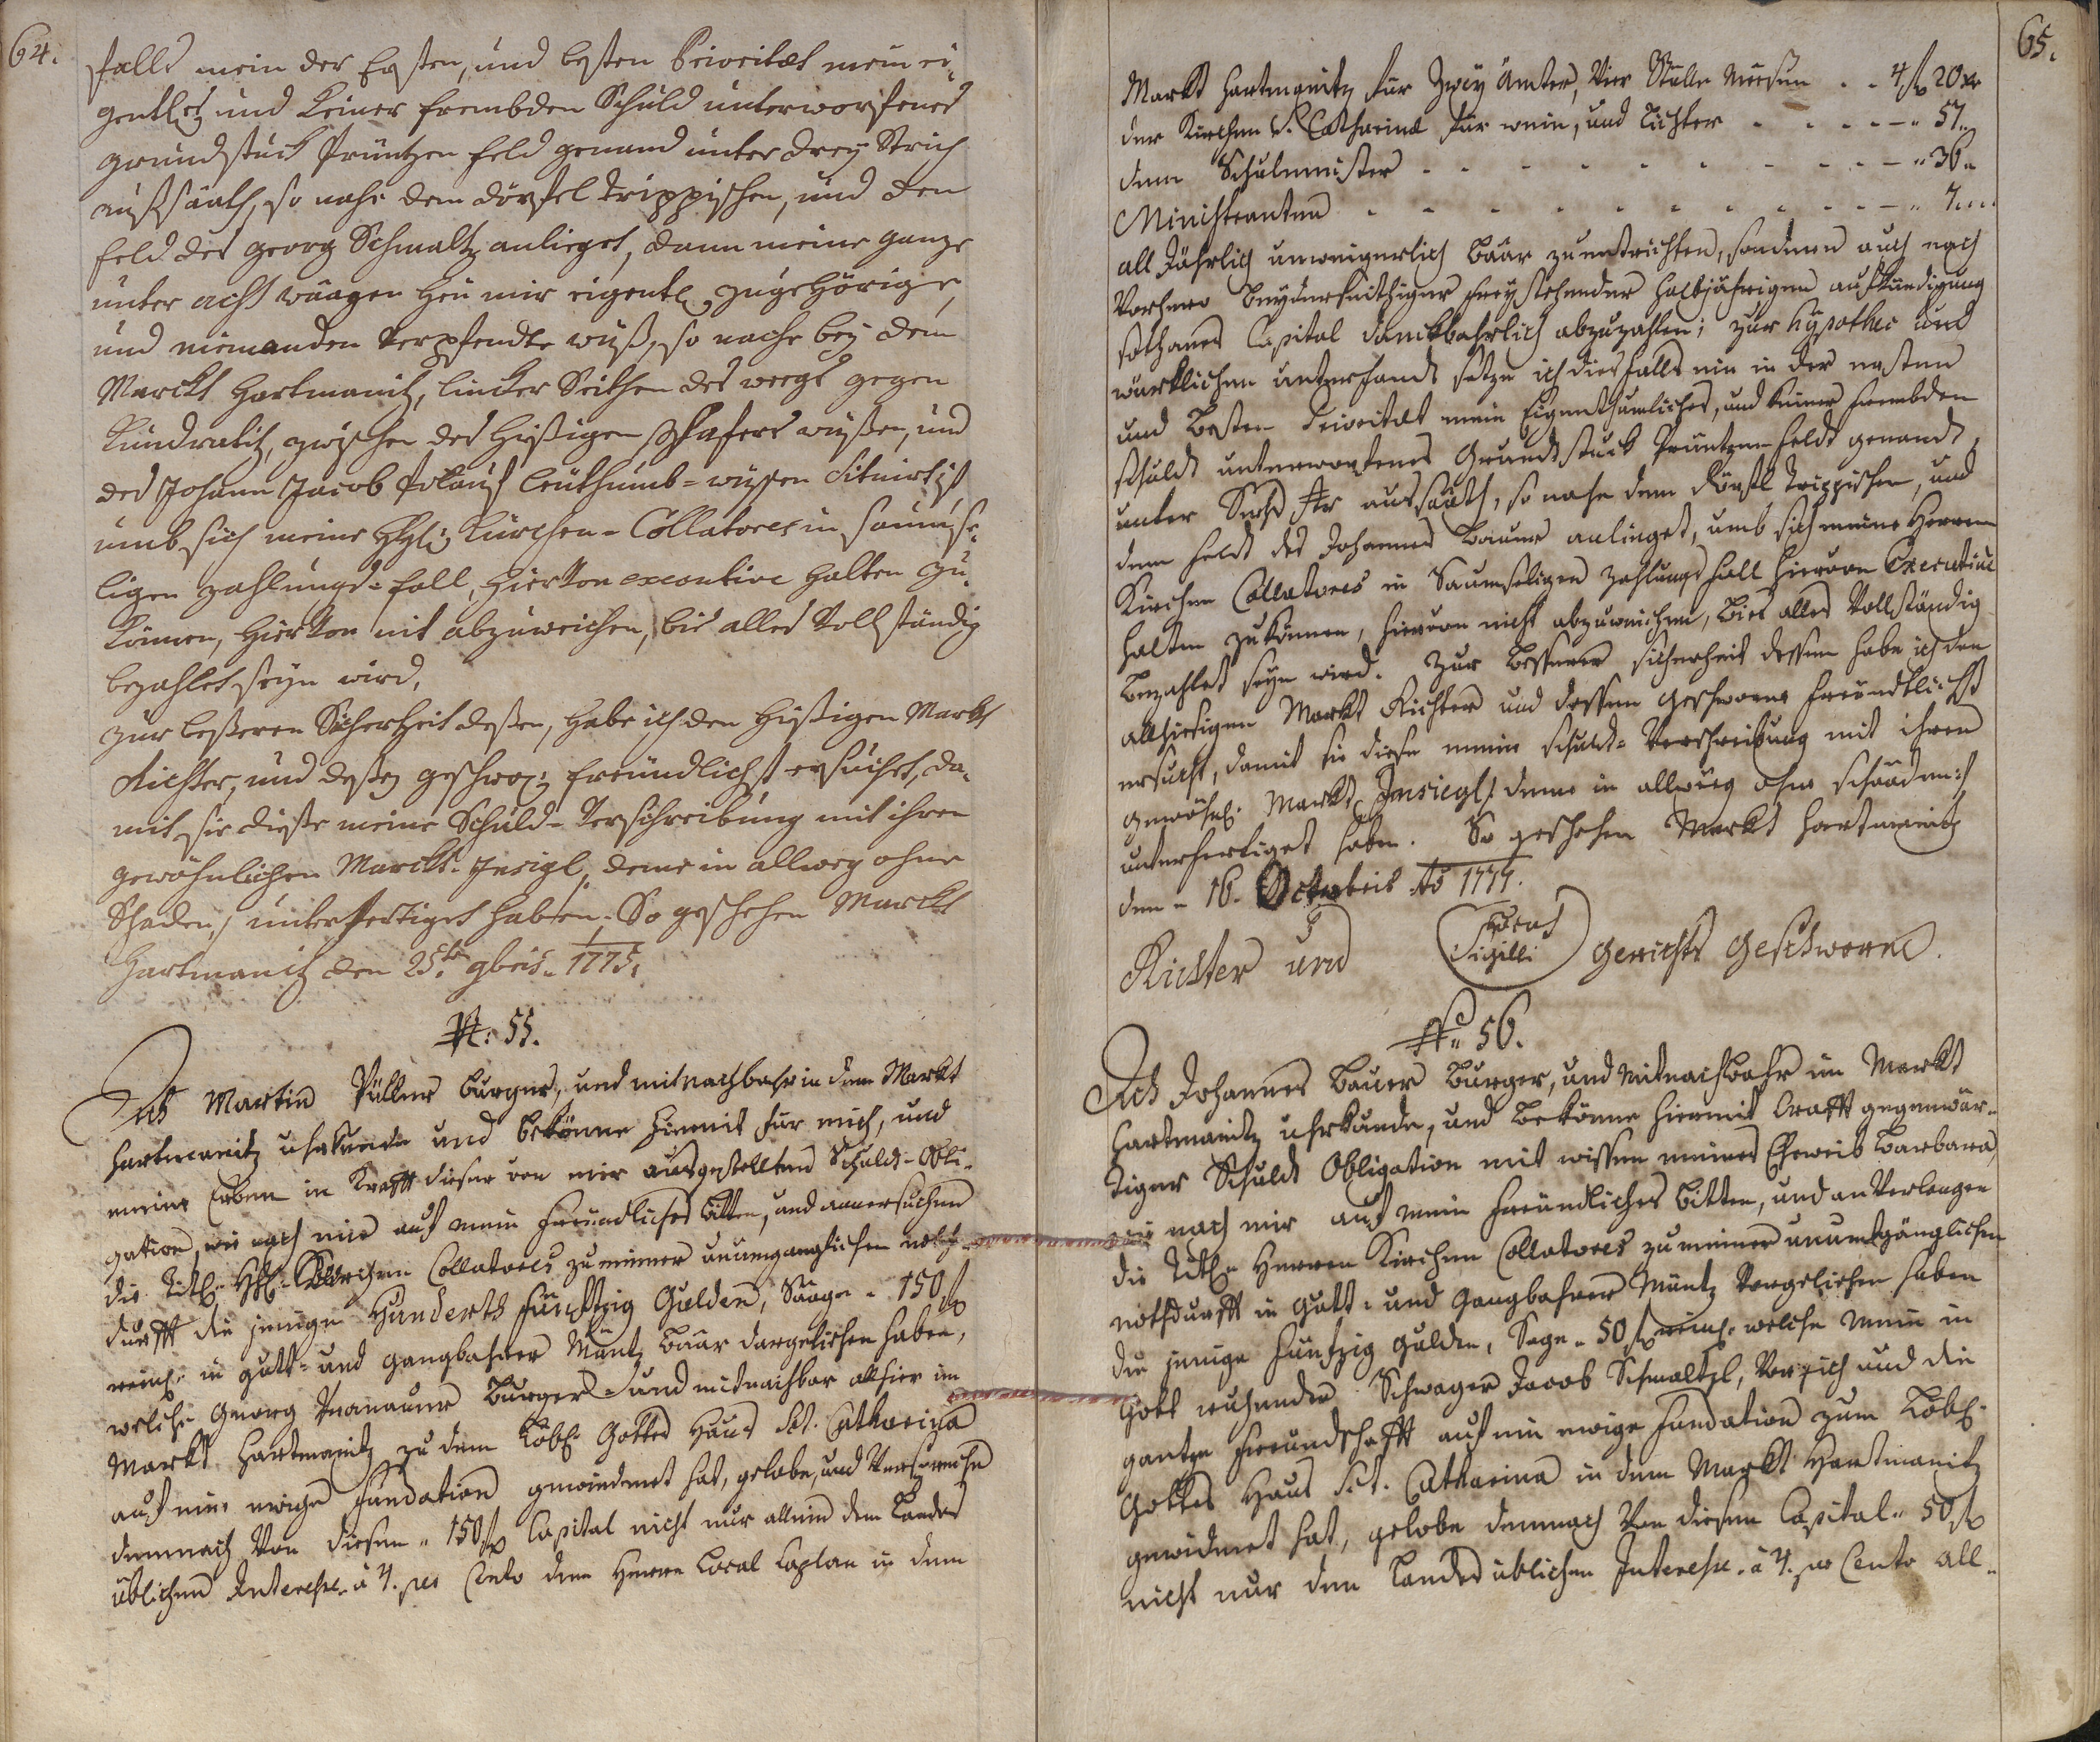 64.
falls mein der Ersten, und besten Prioritæt mein ei-
gentl: und keiner frembden Schuld unterworfenes
grundstuck Prüntzen feld genand unter drey Strich
außsäath, so nahe dem dörfel Trippischen, und den
feld des Georg Schmaltz anlieget, dann meine ganze
unter acht wäagen Heu mir eigentl: zugehörige,
und niemanden verpfendte wüß, so nache bey dem
Marckt Hartmanitz, lincker Seithen des weegs gegen
Kundratitz, zwischen des hießigen Schafers wüßen, und
des Johann Jacob Leuthumb-wüsen Situirt ist,
umb sich meine Kürchen-Collatores in saumse-
ligen zahlungs-fall, hiervon executive halten zu
können, hiervon nit abzuweichen, bis alles vollständig
bezahlet seyn wird.
zur beßeren Sicherheit deßen, habe ich den hießigen Markt
Richter, und deßen geschwo: freundlichst ersuchet, da-
mit sie dieße meine Schuld-Verschreibung mit ihren
gewöhnlichen Marckt-Insigl, deme in allweg ohne
Schaden,/ unterfertiget haben. So geschehen Marckt
Hartmanitz den 25.ten 9bris. 1775.
N: 55.
Ich Martin Püller burger, und mitnachbahr in dem Markt
Hartmanitz uhrkunde und bekönne hiemit für mich, und
meine Erben in Krafft dieser von mir ausgestellten Schuld-Obli-
gation, wie nach mir auf mein freundliches bitten, und anersuchen
die Titl: Kürchen Collatores zu meiner unumganglichen noth-
durfft die jenige Hunderth fünfftzig Gulden, Saage. 150 f
reinl: in gutt- und gangbahrer Müntz baar dargeliehen haben,
welche Georg burger- und mitnachbar allhier im
Markt Hartmanitz zu dem Löbl: Gottes Haus Sct. Catharina
auf eine ewige Fundation gewidmet hat, gelobe, und verspreche
demnach von diesen „ 150 f Capital nicht nur allein dem Landes
üblichen Interesse à 4. per Cento dem Herrn Local Caplan in dem
65.
Markt Hartmanitz für Zwey Ämter, Vier Stille Messen . . 4 f 20 xr
der Kirchen S. Catharina für wein, und Lichter . . . . — „ 57 „
dem Schulmeister . . . . . . . . — „ 36 „
Ministranten . . . . . . . . — „ 7 „
all Jährlich unweigerlich baar zu entrichten, sondern auch nach
Vorhero beyderseithiger freystehender halbjährigen aufkündigung
sothanes Capital danckbahrlich abzuzahlen; zur hypothec und
würklichen unterpfandt setze ich diesfalls ein in der ersten
und besten Prioritæt mein Eigenthumliches, und keiner frembden
schuldt unterworfenes Grundtstuck Prüntzen feldt genandt,
unter Sechs Str aussäath, so nahe dem Dörfl Trippischen, und
dem feldt des Johannes Bauer anlieget, umb sich meine Herren
Kirchen Collatores in Saumseligen Zahlungs fall hiervon Executive
halten zu können, hiervon nicht abzuweichen, bies alles Vollständig
bezahlet seyn wird. Zur bessern sicherheit dessen habe ich den
allhiesigen Markt Richter und dessen geschworne freundtlichst
ersucht, damit sie diese meine schuldt-Verschreibung mit ihren
gewöhnl: Markts Insiegl/: deme in allweeg ohne schaaden:/
unterfertiget haben. So geschehen Markt Hartmanitz
den 16. Octobris Ao 1777.
Richter und
Locus
Sigilli
Gerichts Geschworne.
No. 56.
Ich Johannes Bauer Burger, und mitnachbahr im Markt
Hartmanitz uhrkunde, und bekönne hiermit Crafft gegenwär-
tiger Schuldt Obligation mit wissen meines Eheweib Barbara,
wie nach mir auf mein freundliches bitten, und anverlangen
die Titl: Herren Kirchen Collatores zu meiner unumbgänglichen
nothdurfft in gutt- und gangbahrer Müntz Vorgeliehen haben
die jenige funftzig gulden, Sage „ 50 f reinl: welche mein in
Gott ruhender Schwager Jacob Schmaltzl, Vor sich und die
gantze freundschafft auf ein ewige Fundation zum Löbl:
Gottes Haus Sct. Catharina in dem Markt Hartmanitz
gewidmet hat, gelobe demnach Von diesem Capital „ 50 f
nicht nur dem Landes üblichen Interesse à 4. pr Cento all-